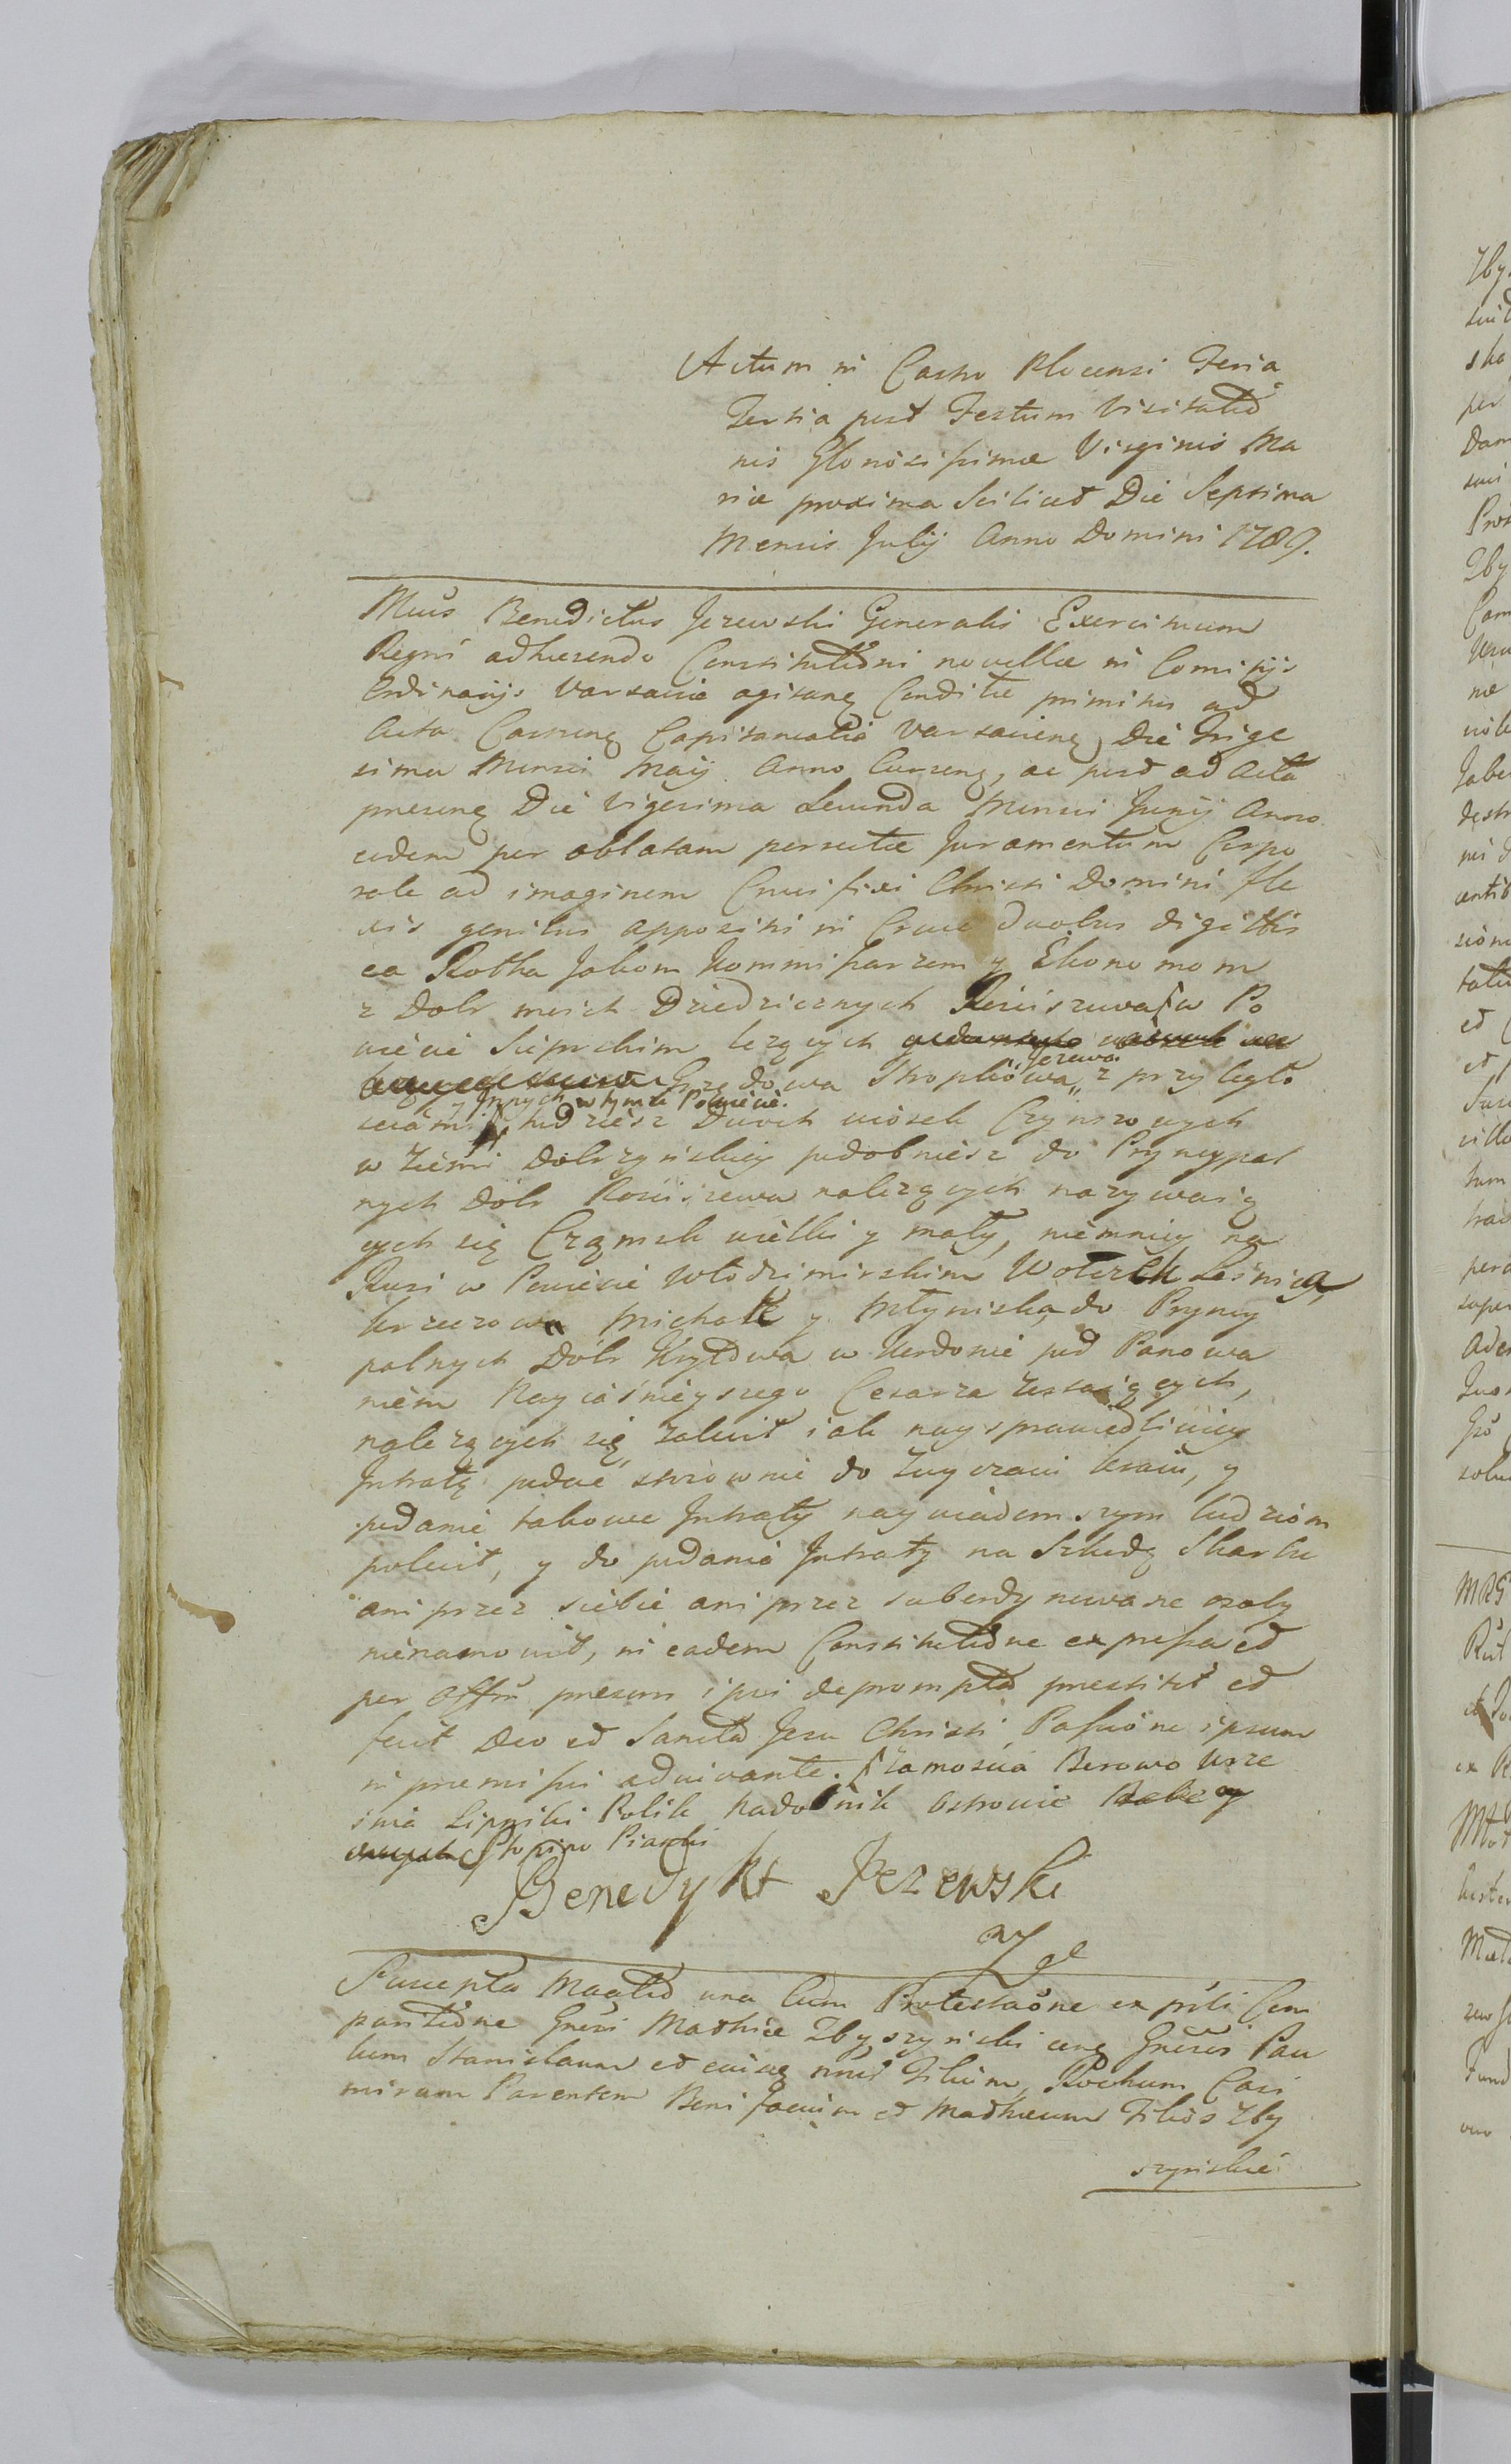 Actum in Castro Plocensi Feria
Tertia post Festum Visitatio
nis Gloriosissimae Virginis Ma
riae proxima Scilicet Die Septima
Mensis Julij Anno Domini 1789.
Mcus Benedictus Jezewski Generalis Exercituum
Regni adhaerendo Constitutioni novellae in Comitijs
Ordinarijs Varsaviae agitanq Conditae primitus ad
Acta Castrenq Capitaneatus Varsavienq Die Trige
sima Mensis Maij Anno Currenq, ac post ad Acta
praesenq Die Vigesima Secunda Mensis Junij Anno
eodem per oblatam porrectae Juramentum Corpo
rale ad imaginem Crucifixi Christi Domini fle
xis genibus appositis in Cruce duobus digittis
ea Rotha Jakom Kommissarzem y Ekonomom
z Dobr moich Dziedzicznych Rościszewa w Po
wiecie Sieprskim lezących
Grzędowa Stropkowa, Jezewa. z przyległo
sciami y Innych w tymże Powiecie. tudziesz Dwoch wiosek Czynszowych
w Ziemi Dobrzynskiey podobniesz do Pryncypal
nych Dobr Rościszewa nalezących nazywaią
cych się Czamsk wielki y mały, niemniey na
Rusi w Powiecie Włodzimirskim Wolczek Leśnica,
Krzeczowa Michale y Młyniska, do Pryncy
palnych Dobr Krystdwa w Kordonie pod Panowa
niem Nayiaśnieyszego Cesarza zostaiących,
nalezących się, zalecił iak naysprawiedliwiey
Intratę podać stosownie do Zwyczaiu kraiu, y
podanie takowe Intraty naywiadomszym ludziom
polecił, y do podania Intraty na Szkodę Skarbu
ani przez siebie ani przez subordynowane osoby
nienamowił, in eadem Constitutione expressa et
per Offm praesens ipsi deprompta praestitit et
fecit Deo et Sancta Jesu Christi Passione ipsum
in praemissis adiuvante. Zamościa Borowo Urze
Lipniki Polik Nadolnik Ostrowie
Benedykt Jezewski
Suscepta Mogtio una Cum Protestaone ex pśti Com
paritione Gnesi Mathiae Zbyszynski cenq Gnesos Pau
lum Stanislaum et cuiusq nmi Filium, Rochum Casi
mirum Parentem Bonifacium et Mathaeum Filios Zby
szynskie